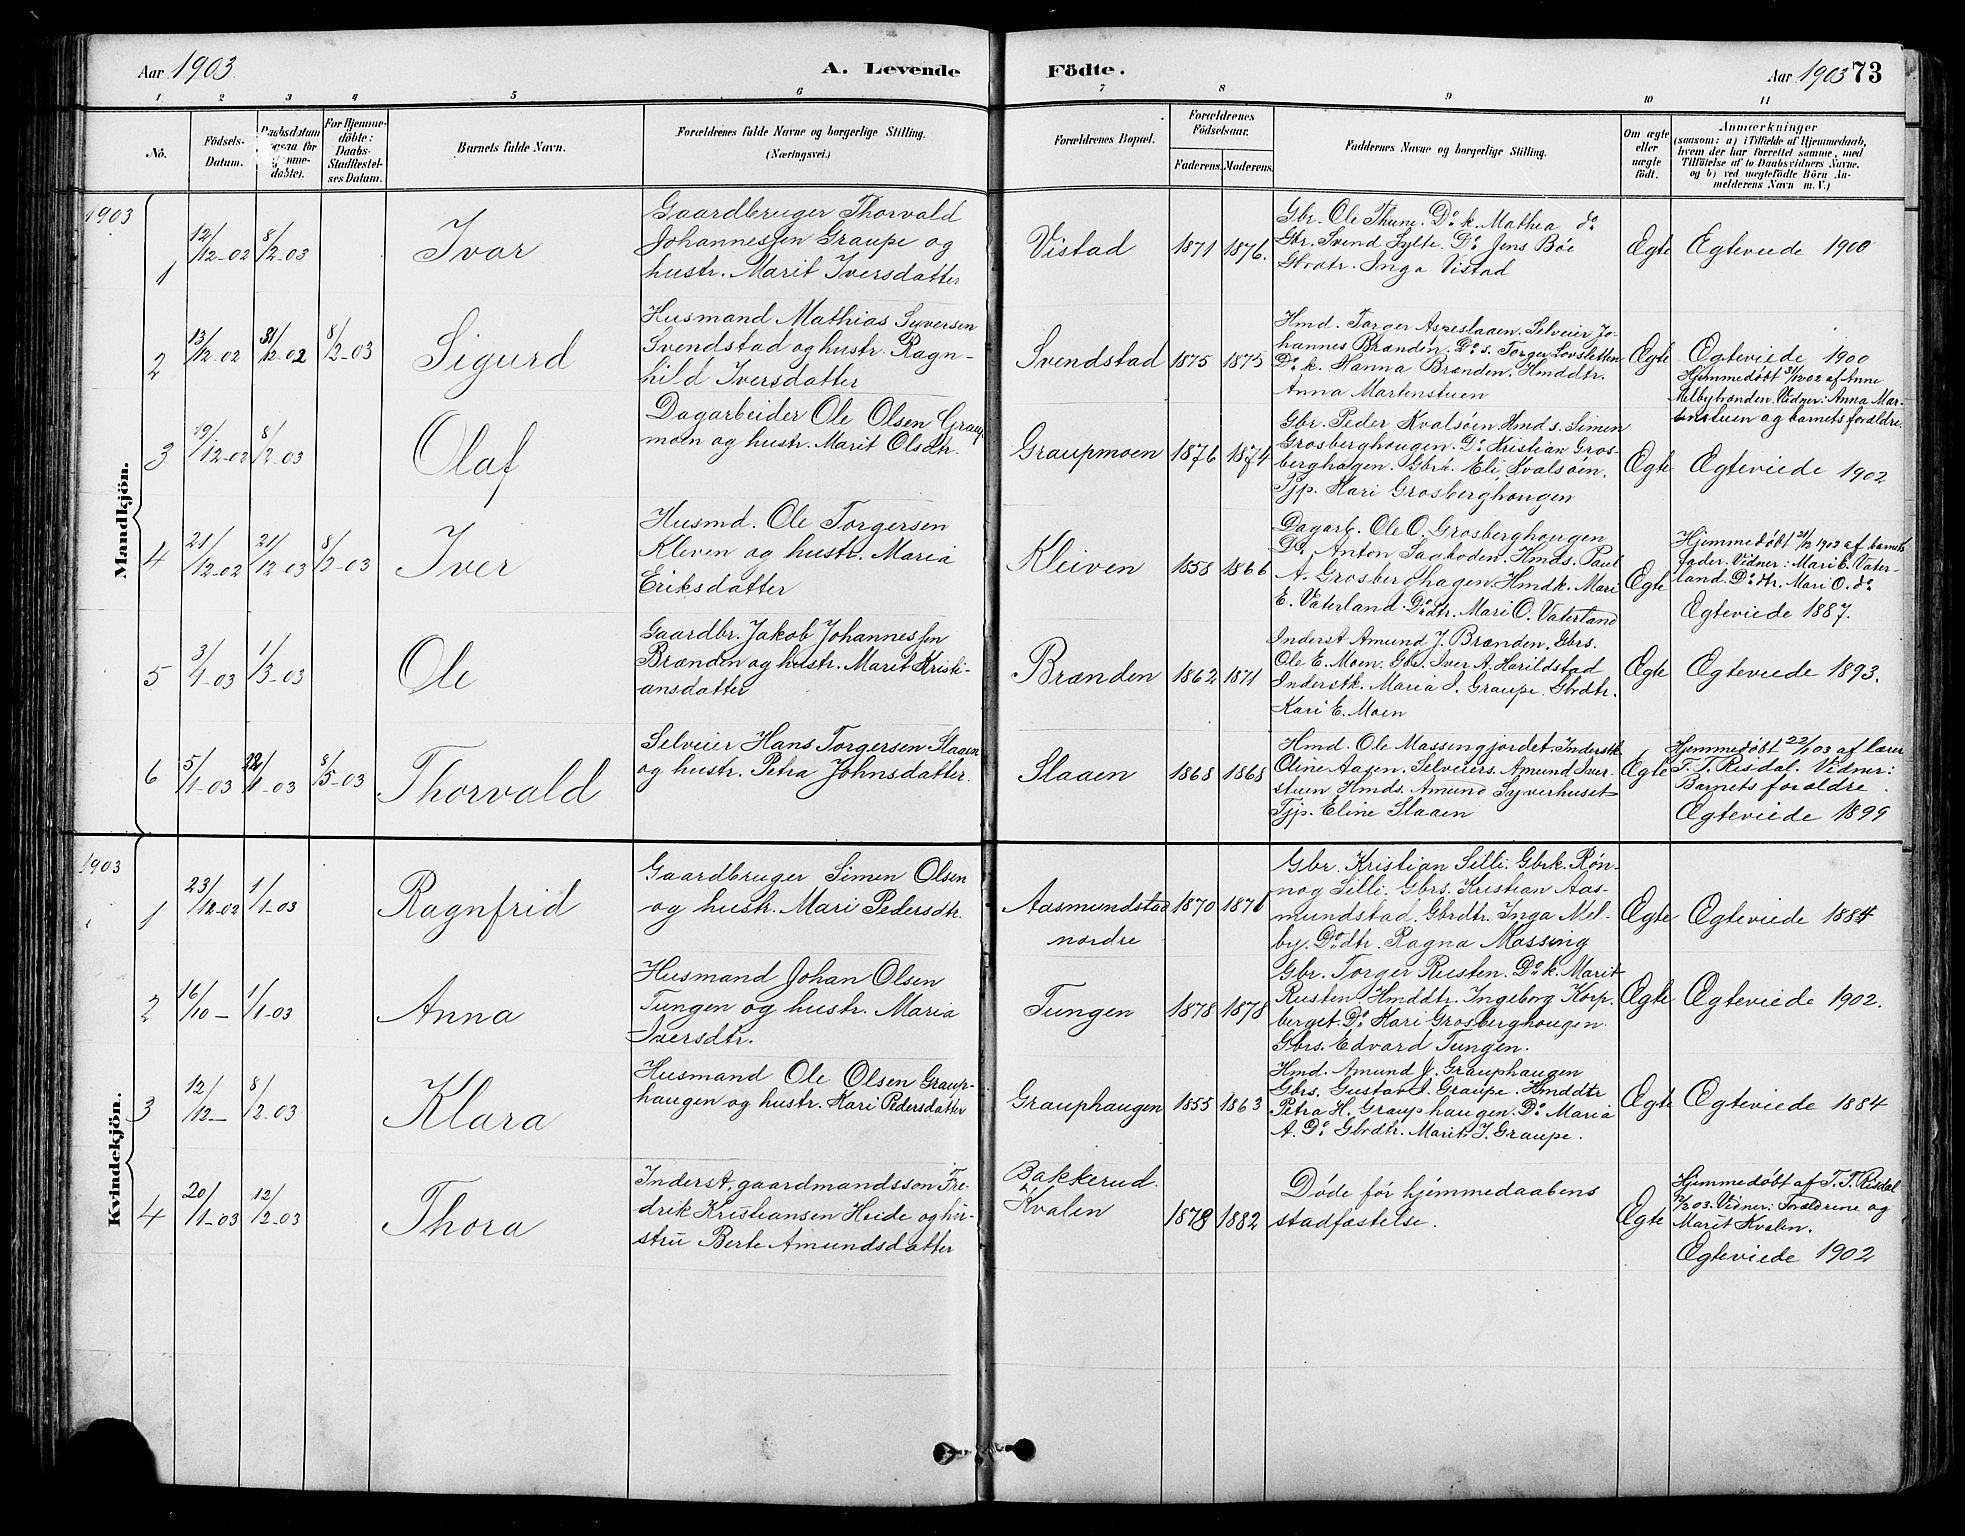 Aar 1903
A. Levende
Födte.
Aar 1903 73
1 2 3 4 5 6 7 8 9 10 11
Nô.
Födsels-
Datum.
For Hjemme-
döbte:
Daabs-
Stadfæstel-
ses Datum.
Barnets fulde Navn.
Forældrenes fulde Navne og borgerlige Stilling.
(Næringsvei.)
Forældrenes Bopæl.
Forældrenes
Födselsaar.
Faderens. Moderens.
Faddernes Navne og borgerlige Stilling.
Om ægte
eller
uægte
födt.
Anmærkninger
(saasom: a) i Tilfælde af Hjemmedaab,
hvem der har forrettet samme, med
Tilföielse af to Daabsvidners Navne.
og b) ved uægtefödte Börn An-
melderens Navn m. V.)
Mandkjön.
1903
1
12/12-02
8/2-03
Ivar
Gaardbruger Thorvald
Johannessen Graupe og
hustr. Marit Iversdatter
Vistad
1871
1876.
Gbr. Ole Thune. Do k. Mathea do
Gbr. Svend Sylte. Do Jens Böe
Gbrdtr. Inga Vistad
Ægte
Ægteviede 1900
2
13/12-02
31/12-02
8/2-03
Sigurd
Husmand Mathias Syversen
Svendstad og hustr. Ragn-
hild Iversdatter
Svendstad
1875
1875
Hmd. Torger Aspeslaaen. Selveier Jo-
hannes Brænden. Do s. Torger Lovsletten
Do k. Hanna Brænden. Hmddtr.
Anna Martinstuen
Ægte
Ægteviede 1900
Hjemmedøbt 31/12 02 af Anne
Melbybrænden. Vidner: Anna Mar-
tinstuen og barnets forældre.
3
19/12-02
8/2-03
Olaf
Dagarbeider Ole Olsen Graup
moen og hustr. Marit Olsdtr.
Graupmoen
1876
1874
Gbr. Peder Kvalsöen Hmds. Simen
Grosberghougen. Do Kristian Gros-
berghagen. Gbrk. Eli Kvalsöen.
Pjp. Kari Grosberghougen
Ægte
Ægteviede 1902
4
21/12-02
21/12-03
8/2-03
Iver
Husmd. Ole Torgersen
Kleven og hustr. Maria
Eriksdatter
Kleiven
1858
1866
Dagarb. Ole O. Grosberghougen
Do, Anton Sagboden. Hmds. Paul
A. Grosberghagen Hmdk. Mari
E. Vaterland. Do dtr. Mari O. Vaterland
Ægte
Hjemmedøbt 21/12 1902 af barnets
fader. Vidner: Mari E. Vater-
land. Do dtr. Mari O. do
Ægteviede 1887.
5
3/1-03
1/3-03
Ole
Gaardbr. Jakob Johannessen
Brænden og hustr. Marit Kristi-
ansdatter
Brænden
1862
1871
Inderst Amund J. Brænden. Gbrs.
Ole E. Moen. Gbr. Iver A. Harildstad
Inderstk. Maria J. Graupe. Gbrdtr.
Kari E. Moen
Ægte
Ægteviede 1893.
6
5/1-03
22/1-03
8/5-03
Thorvald
Selveier Hans Torgersen Slaaen
og hustr. Petra Johnsdatter.
Slaaen
1868
1868
Hmd. Ole Massingjordet. Inderstk.
Oline Aaen. Selveiers. Amund Iver-
stuen Hmds. Amund Syverhuset
Tjp. Eline Slaaen
Ægte
Hjemmedøbt 22/1 03 af lærer
T. T. Risdal. Vidner:
Barnets forældre.
Ægteviede 1899
Kvindekjön.
1903
1
23/12-02
1/1-03
Ragnfrid
Gaardbruger Simen Olsen
og hustr. Mari Pedersdtr.
Aasmundstad
nordre
1870
1876
Gbr. Kristian Silli. Gbrk. Rön-
nog Silli. Gbrs. Kristian Aas-
mundstad. Gbrdtr. Inga Mel-
by. Do dtr. Ragna Massing
Ægte
Ægteviede
2
16/10-
1/1-03
Anna
Husmand Johan Olsen
Tungen og hustr. Maria
Iversdtr.
Tungen
1878
1878
Gbr. Torger Rusten. Do k. Marit
Rusten Hmddtr. Ingeborg Korp-
berget. Do Kari Grosberghougen.
Gbrs. Edvard Tungen.
Ægte
Ægteviede 1902.
3
12/12-
8/2-03
Klara
Husmand Ole Olsen Graup-
haugen og hustr. Kari Pedersdatter
Grauphaugen
1855
1863
Hmd. Amund J. Grauphaugen
Gbrs. Gustav J. Graupe. Hmddtr
Petra H. Grauphaugen. Do Maria
A. Do Gbrdtr. Marit J. Graupe.
Ægte
Ægteviede 1884
4
20/1-03
12/2-03
Thora
Inderst, gaardmandssøn Fre-
drik Kristiansen Heide og hu-
stru Berte Amundsdatter
Bakkerud.
Kvalen
1878
1882
Døde før hjemmedaabens
stadfæstelse.
Ægte
Hjemmedøbt af T. T. Risdal
12/2 03. Vidner: Forældrene og
Marit Kvalen.
Ægteviede 1902